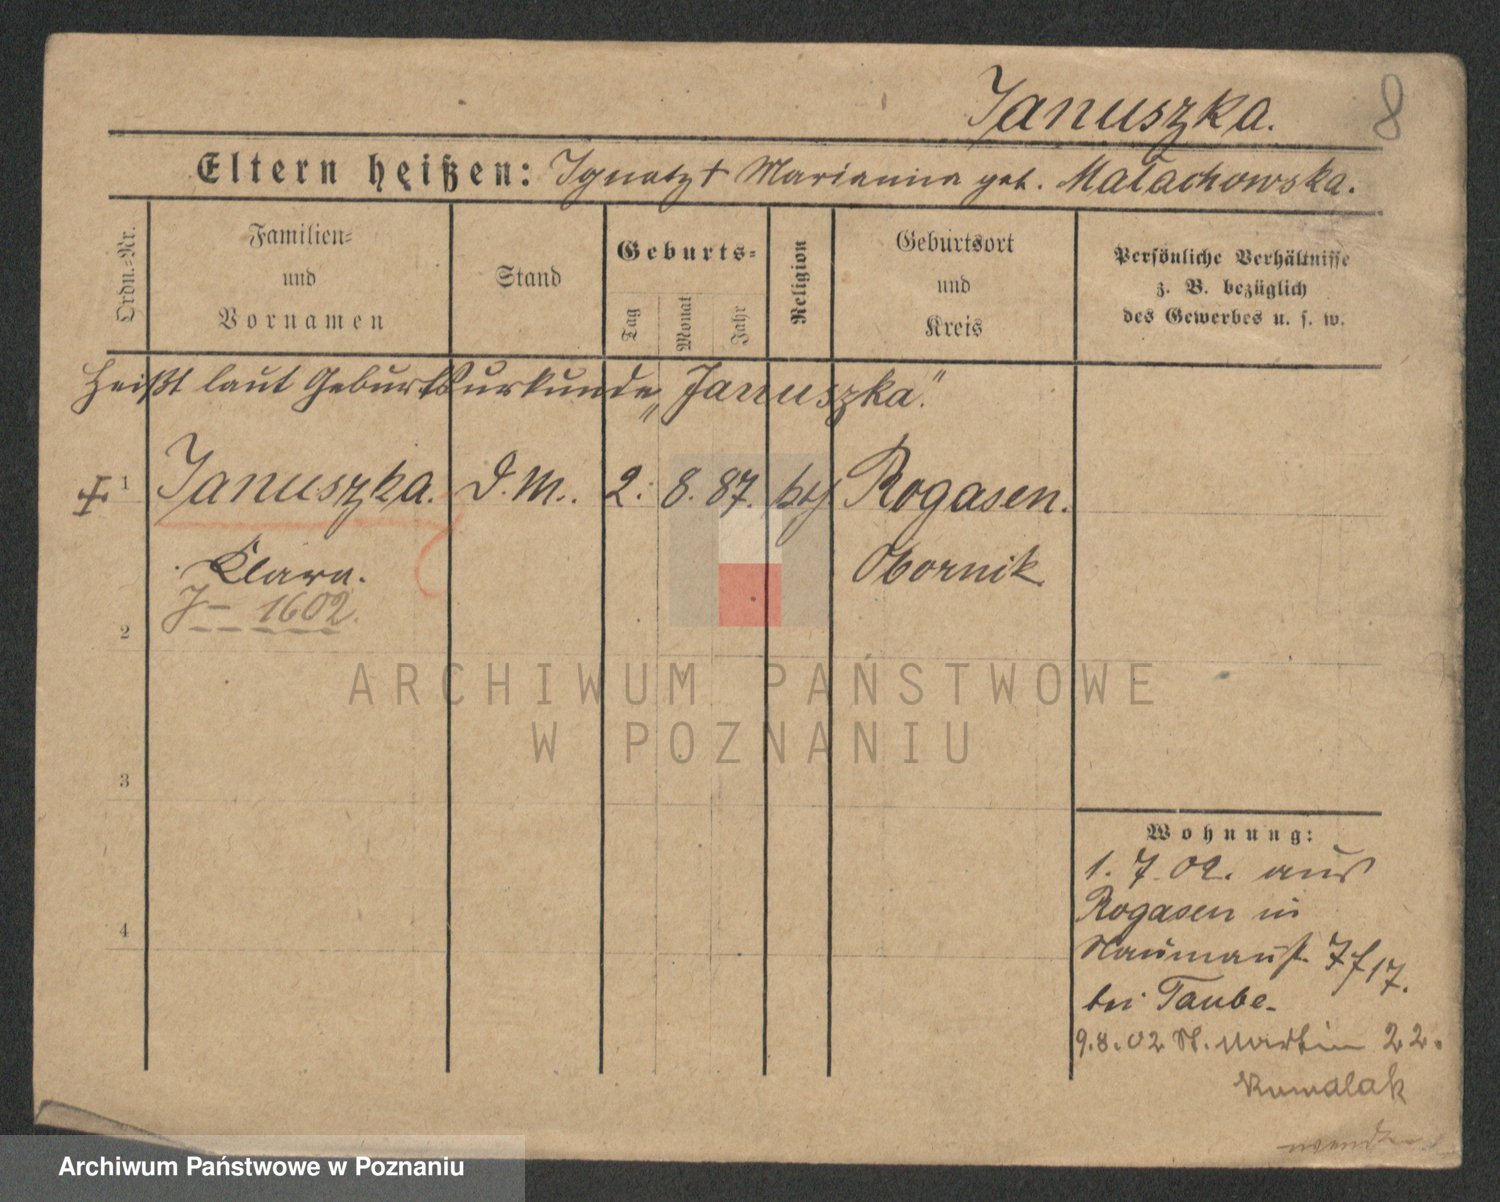 Januszka.
8
Eltern heißen: Ignatz + Marianna geb. Małachowska.
Ordn.=Nr.
Familien=
und
Vornamen
Stand
Geburts=
Tag
Monat
Jahr
Religion
Geburtsort
und
Kreis
Persönliche Verhältnisse
z. B. bezüglich
des Gewerbes u. s. w.
Heißt laut Geburtsurkunde „Januszka“.
1 Januszka. D. M. 2. 8. 87. Rogasen.
Clara. Obornik
J- 1602.
2
3
4
Wohnung:
1. 7. 02. aus
Rogasen in
Naumannst. 7/17.
bei Taube.
9.8.02 St. Martin 22.
Kowalak
wenden
ARCHIWUM PAŃSTWOWE
W POZNANIU
Archiwum Państwowe w Poznaniu